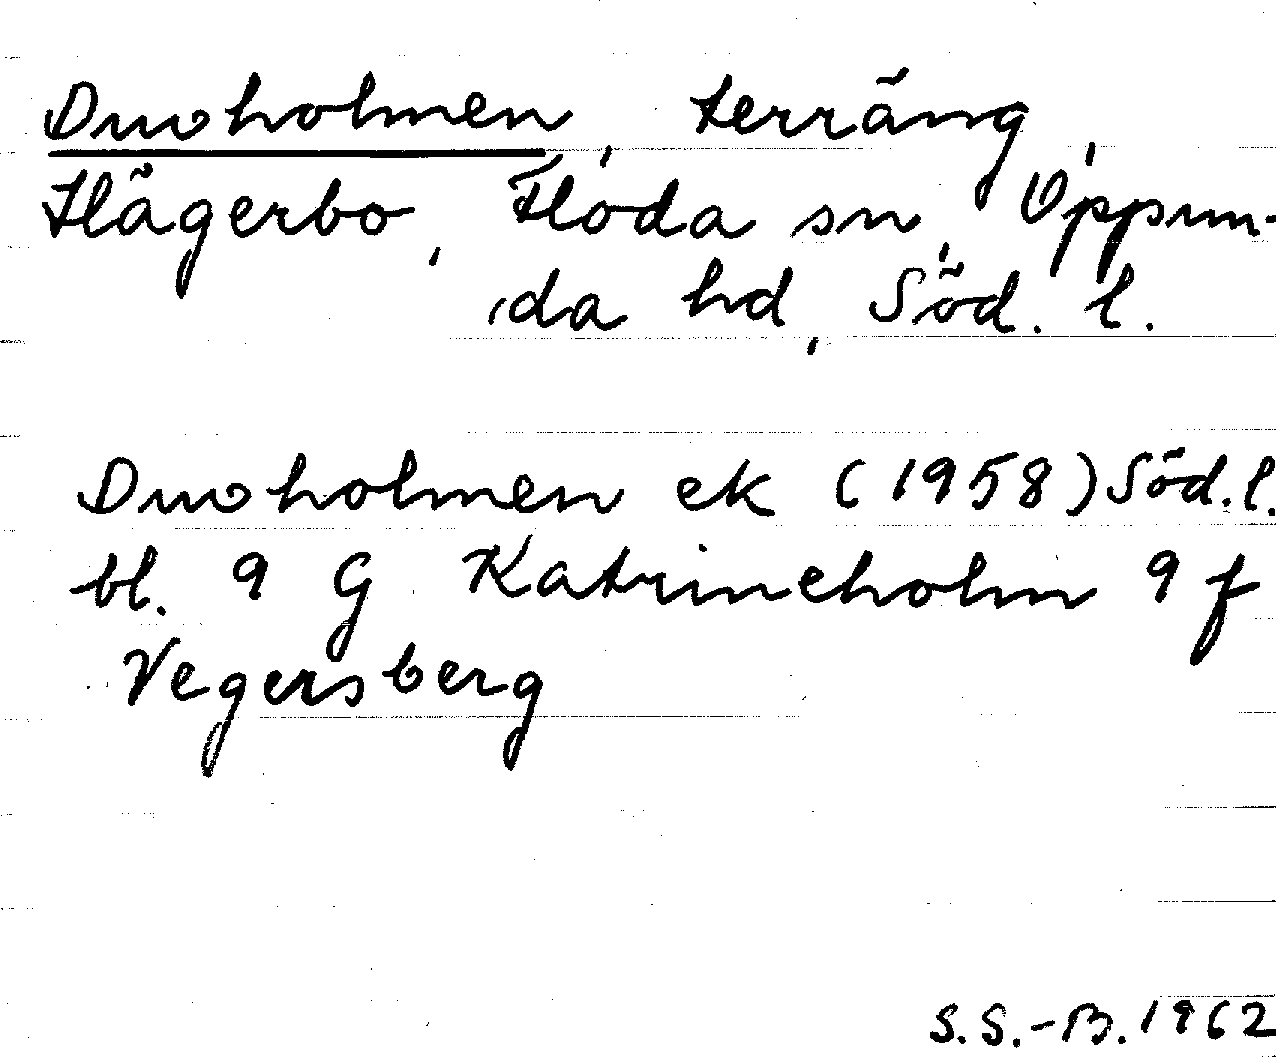 Duvholmen, terräng,
Hägerbo, Floda sn, Oppun-
da hd, Söd. l.
Duvholmen ek (1958) Söd. l.
bl. 9 G Katrineholm 9 f
Vegersberg
S.S.-B. 1962